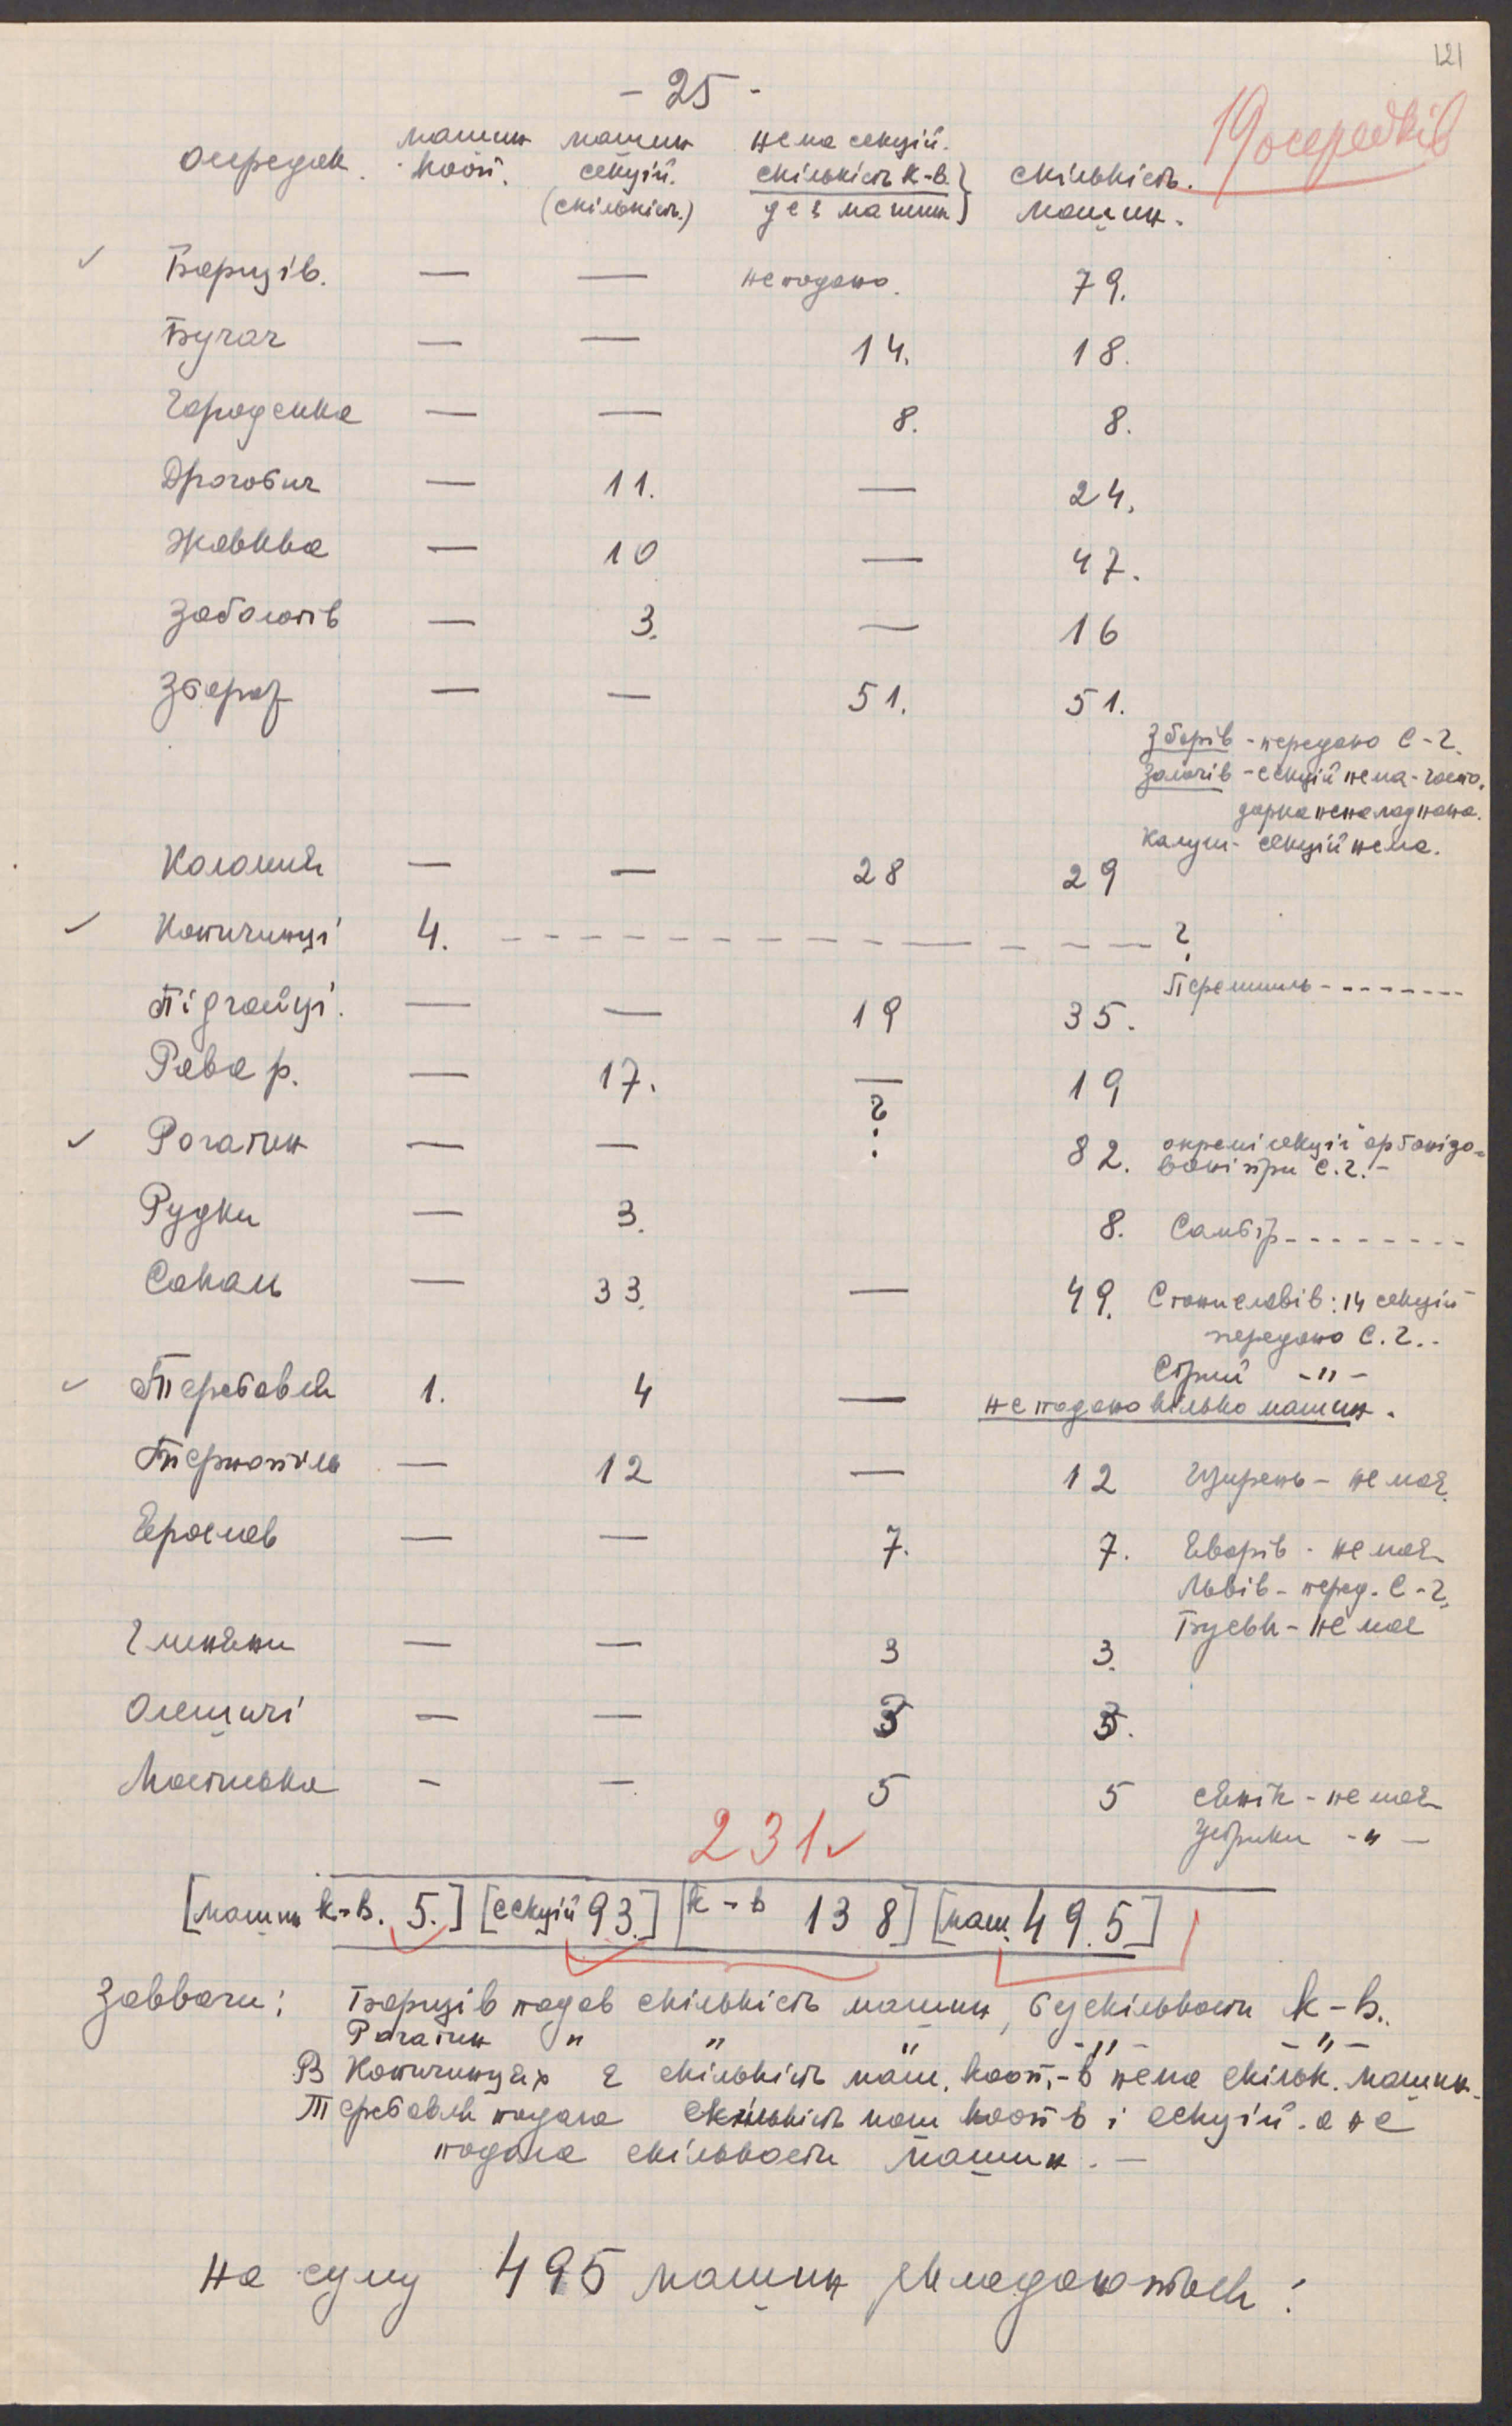 121
- 25 -
19 осередків
осередок. машин кооп. машин секцій. (скількість.) нема секцій. скількість к-в. де є машини} скількість. машин.
✓ Борщів. — — не подано. 79.
Бучач — — 14. 18.
Городенка — — 8. 8.
Дрогобич — 11. — 24.
Жовква — 10 — 47.
Заболотів — 3. — 16
Збараж — — 51. 51.
Зборів - передано С-Г.
Золочів - секцій нема - госпо.
дарка неналаднана.
Калуш - секцій нема.
Коломия — — 28 29
✓ Копичинці 4. - - - - - - - - - - - - ?
Перемишль - - - - - - - -
Підгайці. — — 19 35.
Рава р. — 17. — 19
✓ Рогатин — — ? 82. окремі секції організо-
вані при С.Г. -
Рудки — 3. 8. Самбір - - - - - - - -
Сокаль — 33. — 49. Станиславів: 14 секцій
передано С.Г. -
Стрий -"-
✓ Теребовля 1. 4 — не подано кілько машин.
Тернопіль — 12 — 12 Щирець - не має.
Ярослав — — 7. 7. Яворів - не має
Львів - перед. С-Г.
Буськ - не має
Глиняни — — 3 3.
Олешичі — — 3 3.
Мостиська - — 5 5 Сянік - не має
Устрики -"-
231 ✓
[машин к-в. 5.] [секцій 93.] [к-в 138] [маш. 495]
Завваги: Борщів подав скількість машин, без скількости к-в.
Рогатин " " " -"- -"-
В Копичинцях є скількість маш. кооп.-в нема скільк. машин.
Теребовля подала скількість маш кооп-в і секцій. а не
подала скількости машин. —
на суму 495 машин складаються: